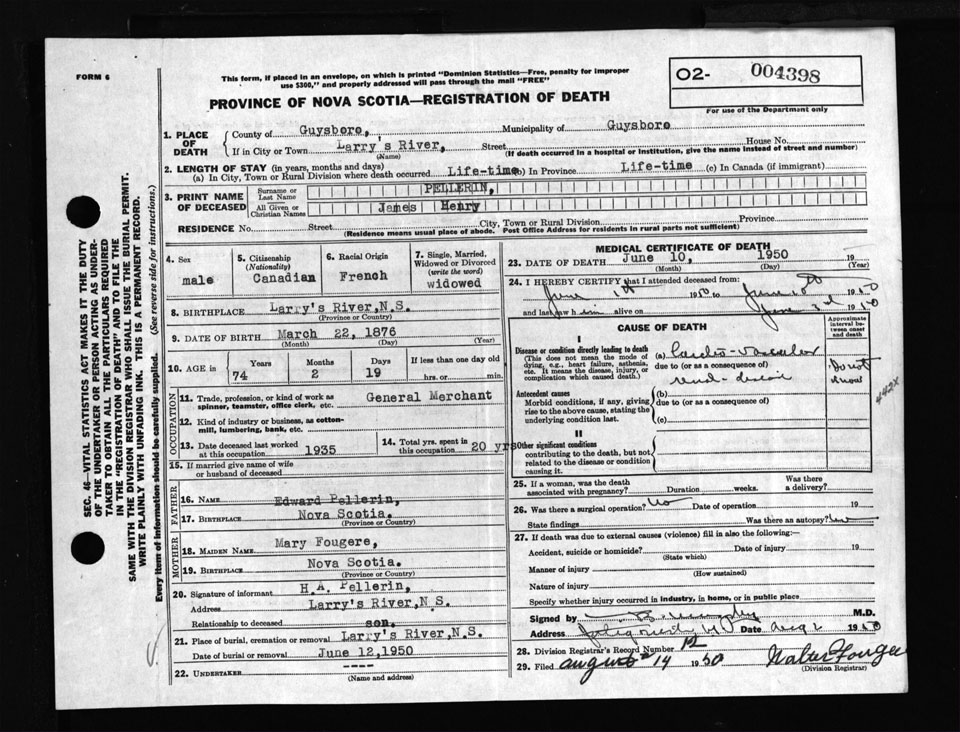 FORM 6
This form, if placed in an envelope, on which is printed "Dominion Statistics—Free, penalty for improper
use $300," and properly addressed will pass through the mail "FREE"
O2- 004398
For use of the Department only
PROVINCE OF NOVA SCOTIA—REGISTRATION OF DEATH
1. PLACE OF DEATH
County of Guysboro, Municipality of Guysboro
If in City or Town Larry's River, Street House No.
(Name) (If death occurred in a hospital or institution, give the name instead of street and number)
2. LENGTH OF STAY (in years, months and days)
(a) In City, Town or Rural Division where death occurred Life-time (b) In Province Life-time (c) In Canada (if immigrant)
3. PRINT NAME OF DECEASED
Surname or Last Name PELLERIN,
All Given or Christian Names James Henry
RESIDENCE No. Street City, Town or Rural Division Province
(Residence means usual place of abode. Post Office Address for residents in rural parts not sufficient)
4. Sex male
5. Citizenship (Nationality) Canadian
6. Racial Origin French
7. Single, Married, Widowed or Divorced (write the word) widowed
8. BIRTHPLACE Larry's River, N.S.
(Province or Country)
9. DATE OF BIRTH March 22, 1876
(Month) (Day) (Year)
10. AGE in Years 74 Months 2 Days 19 If less than one day old
hrs. or min.
OCCUPATION
11. Trade, profession, or kind of work as spinner, teamster, office clerk, etc. General Merchant
12. Kind of industry or business, as cotton-mill, lumbering, bank, etc.
13. Date deceased last worked at this occupation 1935
14. Total yrs. spent in this occupation 20 yrs
15. If married give name of wife or husband of deceased
FATHER
16. NAME Edward Pellerin,
17. BIRTHPLACE Nova Scotia.
(Province or Country)
MOTHER
18. MAIDEN NAME Mary Fougere,
19. BIRTHPLACE Nova Scotia.
(Province or Country)
20. Signature of informant H.A. Pellerin,
Address Larry's River, N S.
Relationship to deceased son.
21. Place of burial, cremation or removal Larry's River, N.S.
Date of burial or removal June 12, 1950
22. UNDERTAKER ----
(Name and address)
MEDICAL CERTIFICATE OF DEATH
23. DATE OF DEATH June 10, 1950 19
(Month) (Day) (Year)
24. I HEREBY CERTIFY that I attended deceased from:
June 1st 1950 to June 10th 1950
and last saw him alive on June 3d 1950
CAUSE OF DEATH
Approximate interval between onset and death
I
Disease or condition directly leading to death (a) Cardio-vascular
(This does not mean the mode of dying, e.g., heart failure, asthenia, etc. It means the disease, injury, or complication which caused death.)
due to (or as a consequence of)
renal-disease
Do not know
442X
Antecedent causes (b)
Morbid conditions, if any, giving rise to the above cause, stating the underlying condition last.
due to (or as a consequence of)
(c)
II
Other significant conditions
contributing to the death, but not related to the disease or condition causing it.
25. If a woman, was the death associated with pregnancy? Duration weeks. Was there a delivery?
26. Was there a surgical operation? No Date of operation 19
State findings Was there an autopsy? No
27. If death was due to external causes (violence) fill in also the following:—
Accident, suicide or homicide? Date of injury 19
(State which)
Manner of injury
(How sustained)
Nature of injury
Specify whether injury occurred in industry, in home, or in public place
Signed by M.D.
Address Date Aug 2 1950
28. Division Registrar's Record Number 12
29. Filed August 14 1950 Walter Fougere
(Division Registrar)
SEC. 46—VITAL STATISTICS ACT MAKES IT THE DUTY
OF THE UNDERTAKER OR PERSON ACTING AS UNDER-
TAKER TO OBTAIN ALL THE PARTICULARS REQUIRED
IN THE "REGISTRATION OF DEATH" AND TO FILE THE
SAME WITH THE DIVISION REGISTRAR WHO SHALL ISSUE THE BURIAL PERMIT.
WRITE PLAINLY WITH UNFADING INK. THIS IS A PERMANENT RECORD.
Every item of information should be carefully supplied. (See reverse side for instructions.)